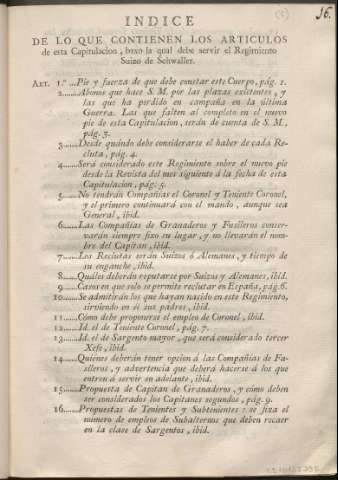 36.
INDICE
DE LO QUE CONTIENEN LOS ARTICULOS
de esta Capitulacion, baxo la qual debe servir el Regimiento
Suizo de Schwaller.
ART. 1.º ...Pie y fuerza de que debe constar este Cuerpo, pág. 1.
2........Abonos que hace S. M. por las plazas existentes, y
las que ha perdido en campaña en la última
Guerra. Las que falten al completo en el nuevo
pie de esta Capitulacion, serán de cuenta de S. M.,
pág. 3.
3......Desde quándo debe considerarse el haber de cada Re-
cluta, pág. 4.
4......Será considerado este Regimiento sobre el nuevo pie
desde la Revista del mes siguiente á la fecha de esta
Capitulacion, pág. 5.
5......No tendrán Compañías el Coronel y Teniente Coronel,
y el primero continuará con el mando, aunque sea
General, ibid.
6......Las Compañías de Granaderos y Fusileros conser-
varán siempre fixo su lugar, y no llevarán el nom-
bre del Capitan, ibid.
7......Los Reclutas serán Suizos ó Alemanes, y tiempo de
su enganche, ibid.
8......Quáles deberán reputarse por Suizos y Alemanes, ibid.
9......Casos en que solo se permite reclutar en España, pág. 6.
10......Se admitirán los que hayan nacido en este Regimiento,
sirviendo en él sus padres, ibid.
11......Cómo debe proponerse el empleo de Coronel, ibid.
12......Id. el de Teniente Coronel, pág. 7.
13......Id. el de Sargento mayor, que será considerado tercer
Xefe, ibid.
14......Quienes deberán tener opcion á las Compañías de Fu-
sileros, y advertencia que deberá hacerse á los que
entren á servir en adelante, ibid.
15......Propuesta de Capitan de Granaderos, y cómo deben
ser considerados los Capitanes segundos, pág. 9.
16......Propuestas de Tenientes y Subtenientes: se fixa el
número de empleos de Subalternos que deben recaer
en la clase de Sargentos, ibid.